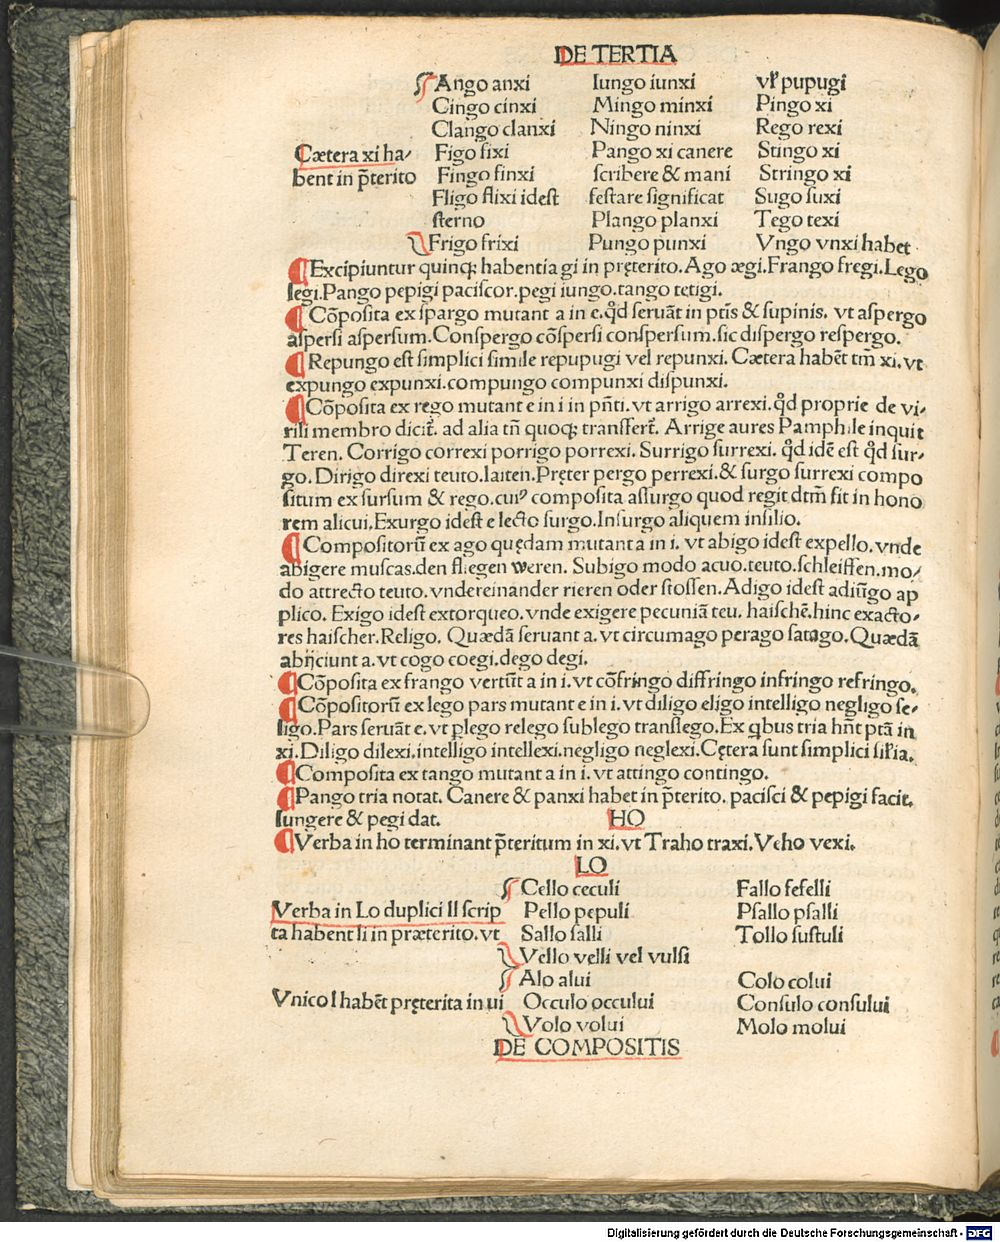 DE TERTIA
Ango anxi Iungo iunxi vl' pupugi
Cingo cinxi Mingo minxi Pingo xi
Clango clanxi Ningo ninxi Rego rexi
Cætera xi ha/ Figo fixi Pango xi canere Stingo xi
bent in p̃terito Fingo finxi scribere & mani Stringo xi
Fligo flixi idest festare significat Sugo suxi
sterno Plango planxi Tego texi
Frigo frixi Pungo punxi Vngo vnxi habet
¶ Excipiuntur quinq; habentia gi in pręterito. Ago ægi. Frango fregi. Lego
legi. Pango pepigi paciscor. pegi iungo. tango tetigi.
¶ Cōposita ex spargo mutant a in e. qd̃ seruāt in ptīs & supinis. vt aspergo
aspersi aspersum. Conspergo cōspersi conspersum. sic dispergo respergo.
¶ Repungo est simplici simile repupugi vel repunxi. Cætera habēt tm̄ xi. vt
expungo expunxi. compungo compunxi dispunxi.
¶ Cōposita ex rego mutant e in i in pñti. vt arrigo arrexi. qd̃ proprie de vi/
rili membro dicit̃. ad alia tñ quoq; transfert̃. Arrige aures Pamphile inquit
Teren. Corrigo correxi porrigo porrexi. Surrigo surrexi. qd̃ idē est qd̃ sur/
go. Dirigo direxi teuto. laiten. Pręter pergo perrexi. & surgo surrexi compo
situm ex sursum & rego. cuiꝰ composita assurgo quod regit dtm̃ fit in hono
rem alicui. Exurgo idest e lecto surgo. Insurgo aliquem insilio.
¶ Compositorū ex ago quędam mutant a in i. vt abigo idest expello. vnde
abigere muscas. den fliegen weren. Subigo modo acuo. teuto. schleiffen. mo/
do attrecto teuto. vndereinander rieren oder stossen. Adigo idest adiūgo ap
plico. Exigo idest extorqueo. vnde exigere pecuniā teu. haischē. hinc exacto/
res haischer. Religo. Quædā seruant a. vt circumago perago satago. Quædā
abijciunt a. vt cogo coegi. dego degi.
¶ Cōposita ex frango vertūt a in i. vt cōfringo diffringo infringo refringo.
¶ Cōpositorū ex lego pars mutant e in i. vt diligo eligo intelligo negligo se/
ligo. Pars seruāt e. vt plego relego sublego translego. Ex qbus tria hñt ptā in
xi. Diligo dilexi. intelligo intellexi. negligo neglexi. Cętera sunt simplici sil'ia.
¶ Composita ex tango mutant a in i. vt attingo contingo.
¶ Pango tria notat. Canere & panxi habet in p̃terito. pacisci & pepigi facit.
iungere & pegi dat. HO
¶ Verba in ho terminant p̃teritum in xi. vt Traho traxi. Veho vexi.
LO
Cello ceculi Fallo fefelli
Verba in Lo duplici ll scrip Pello pepuli Psallo psalli
ta habent li in præterito. vt Sallo salli Tollo sustuli
Vello velli vel vulsi
Alo alui Colo colui
Vnico l habēt pręterita in ui Occulo occului Consulo consului
Volo volui Molo molui
DE COMPOSITIS
Digitalisierung gefördert durch die Deutsche Forschungsgemeinschaft - DFG